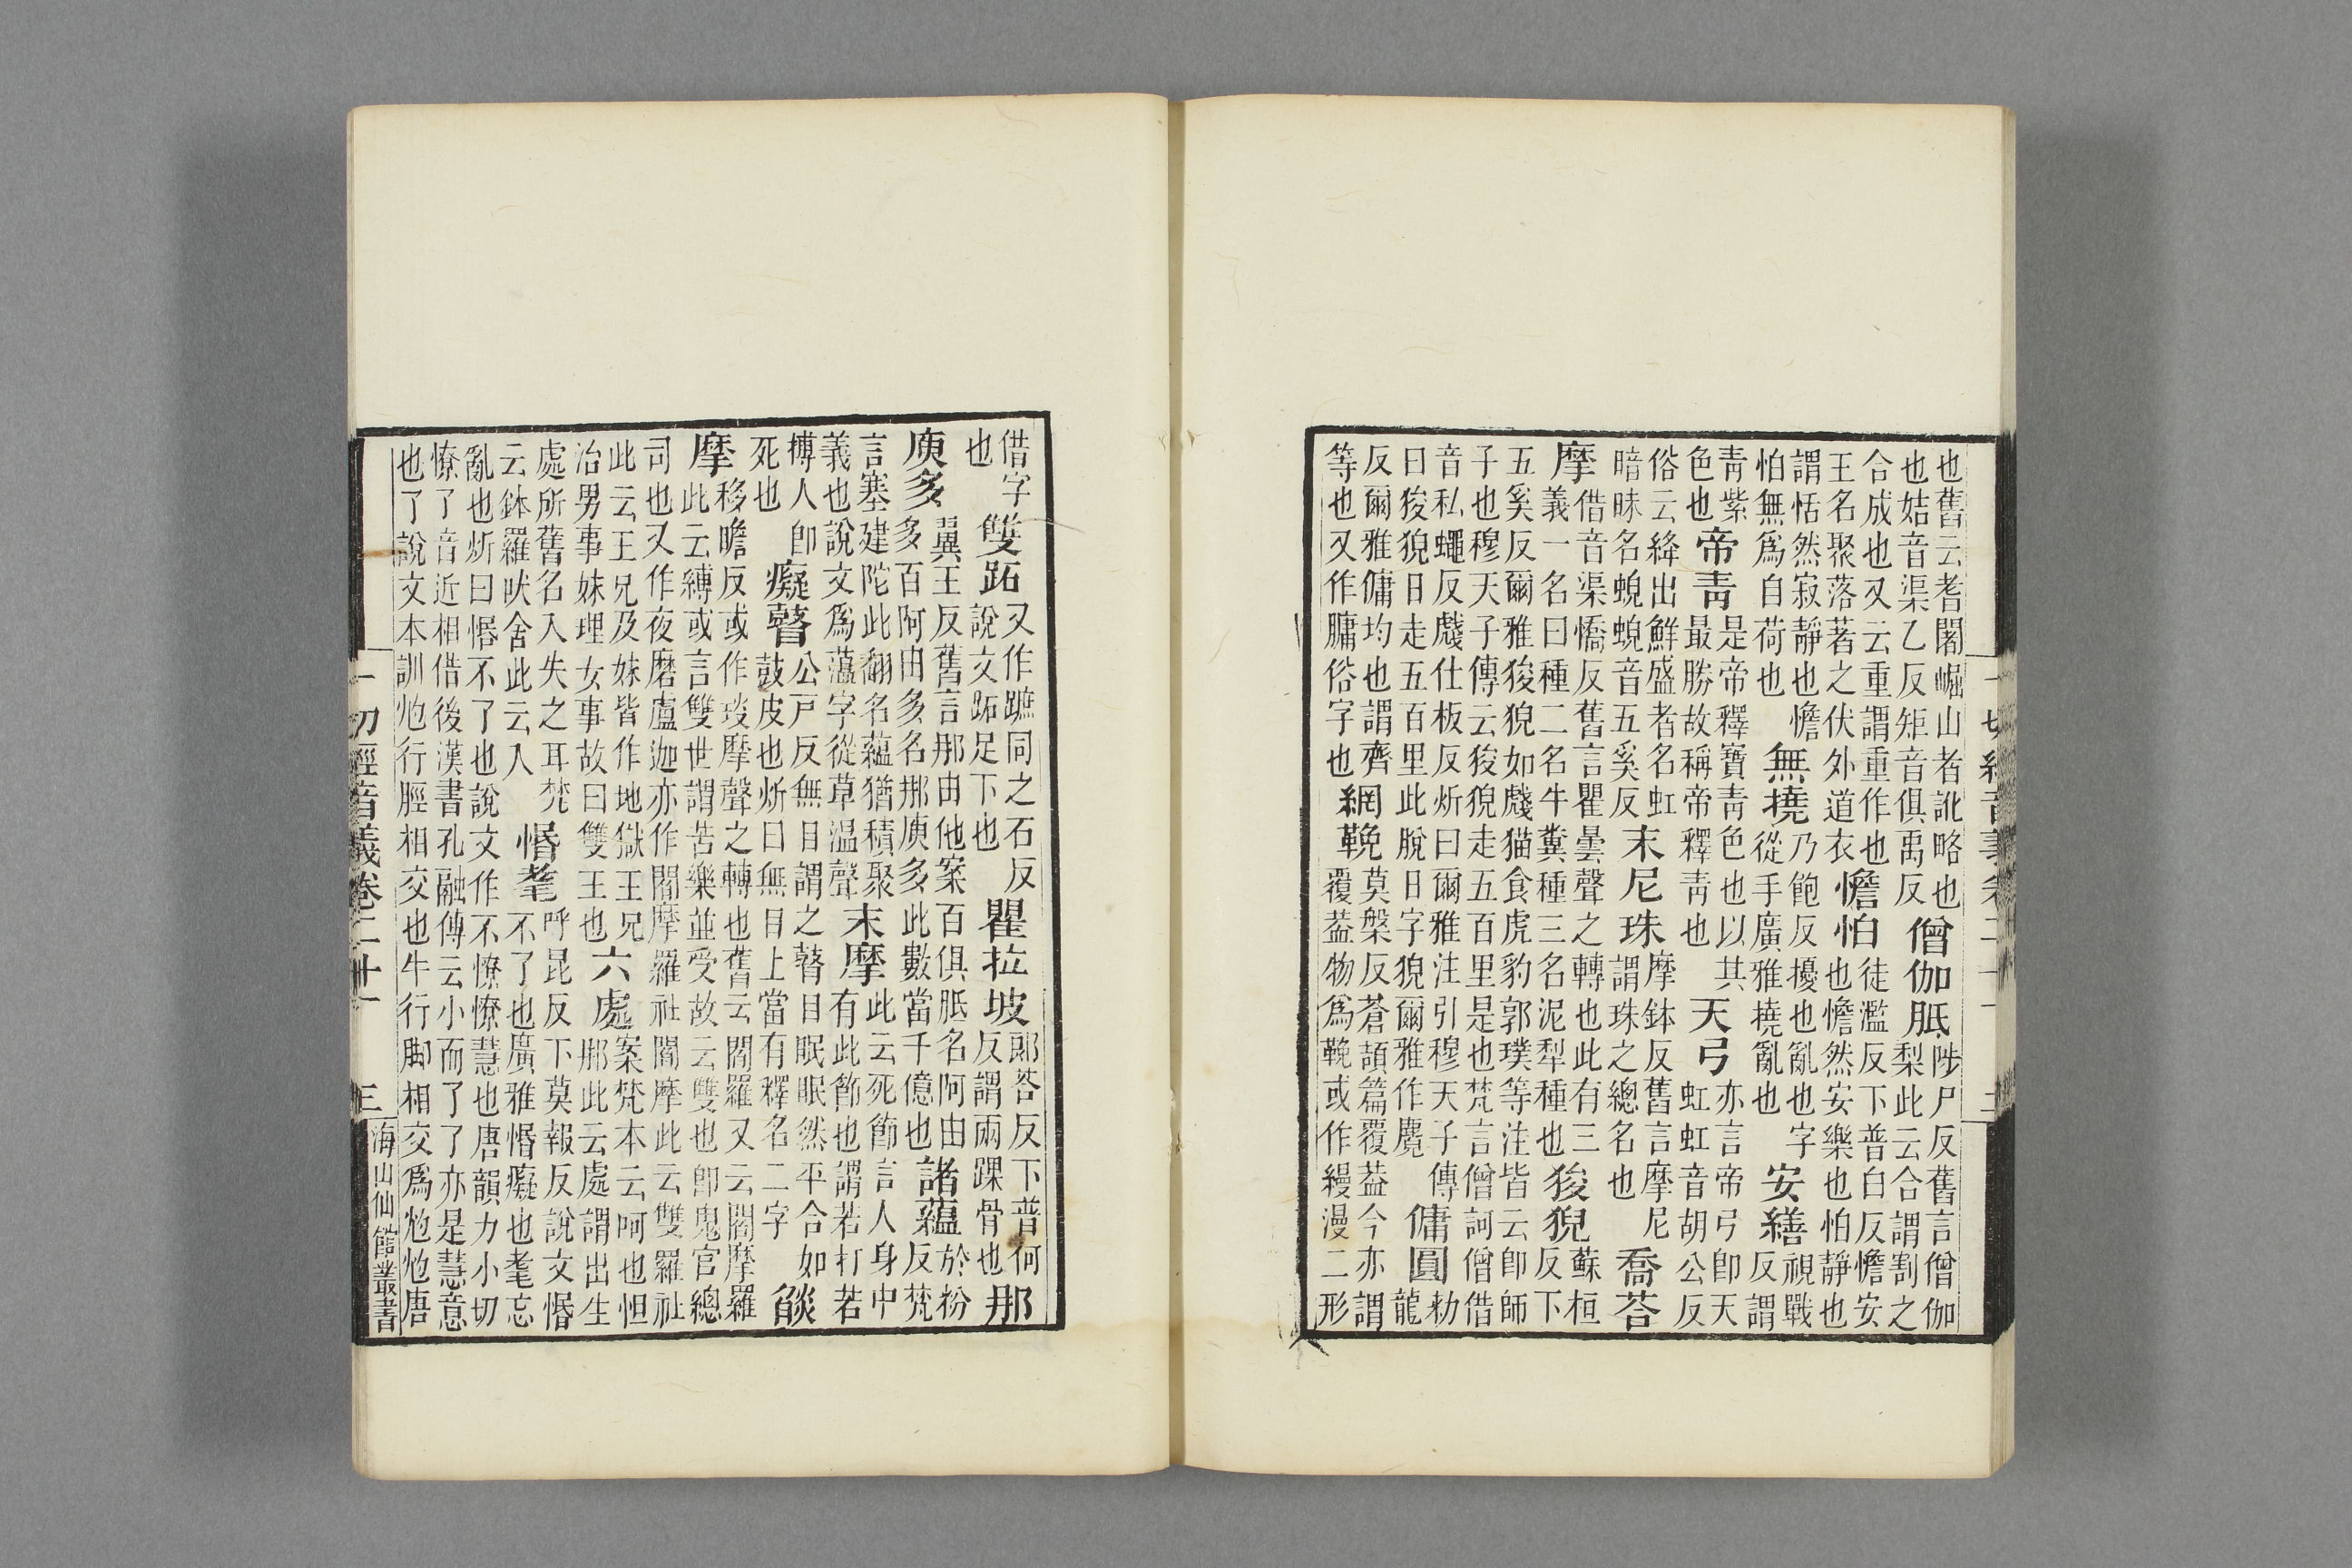 也舊云耆闍崛山者訛略也也姞音渠乙反矩音俱禹反僧伽胝陟尸反舊言僧伽梨此云合謂割之
合成也又云重謂重作也王名聚落著之伏外道衣憺怕徒濫反下普白反憺安也憺然安樂也怕靜也
謂恬然寂靜也憺怕無爲自荷也無撓乃飽反擾也亂也字從手廣雅撓亂也安繕視戰反謂
靑紫色也帝靑是帝釋寶靑色也以其最勝故稱帝釋靑也天弓亦言帝弓卽天虹虹音胡公反
俗云絳出鮮盛者名虹暗昧名蜺蜺音五奚反末尼珠摩鉢反舊言摩尼謂珠之總名也喬荅
摩借音渠憍反舊言瞿曇聲之轉也此有三義一名曰種二名牛糞種三名泥犁種也狻猊蘇桓反下
五奚反爾雅狻猊如虥猫食虎豹郭璞等注皆云卽師子也穆天子傳云狻猊走五百里是也梵言僧訶僧借
音私蠅反虥仕板反炘曰爾雅注引穆天子傳曰狻猊日走五百里此脫日字猊爾雅作麑傭圓勑龍
反爾雅傭均也謂齊等也又作𦟛俗字也網鞔莫槃反蒼頡篇覆葢今亦謂覆葢物爲鞔或作縵漫二形
一切經音義卷二十一
借字也雙跖又作蹠同之石反說文跖足下也瞿拉坡郞荅反下普何反謂兩踝骨也那
庾多翼王反舊言那由他案百俱胝名阿由多百阿由多名那庾多此數當千億也諸蘊於粉反梵
言塞建陀此翻名蘊猶積聚義也說文爲薀字從草温聲末摩此云死節言人身中有此節也謂若打若
搏人卽死也癡瞽公戸反無目謂之瞽目眠眠然平合如鼓皮也炘曰無目上當有釋名二字燄
摩移瞻反或作琰摩聲之轉也舊云閻羅又云閻摩羅此云縛或言雙世謂苦樂並受故云雙也卽鬼官總
司也又作夜磨盧迦亦作閻摩羅社閻摩此云雙羅社
此云王兄及妹皆作地獄王兄治男事妹理女事故曰雙王也六處案梵本云呵也怛那此云處謂出生
處所舊名入失之耳梵云鉢羅吠舍此云入惛耄呼昆反下莫報反說文惛不了也廣雅惛癡也耄忘
亂也炘曰惛不了也說文作不憭憭慧也唐韻力小切
憭了音近相借後漢書孔融傳云小而了了亦是慧意
也了說文本訓尥行脛相交也牛行脚相交爲尥尥唐
一切經音義卷二十一 三 海山仙館叢書